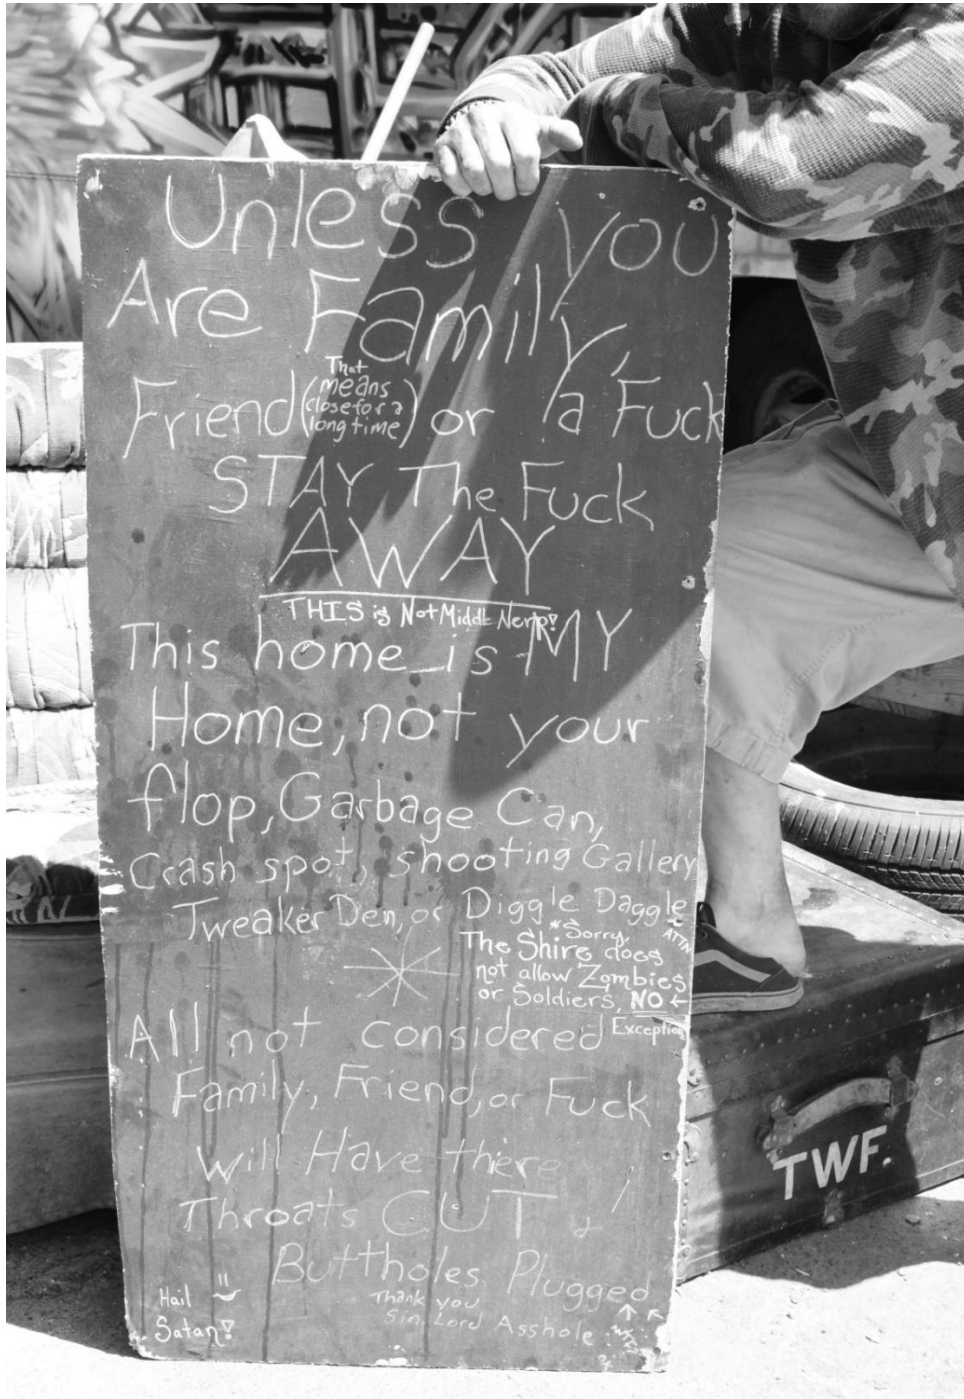 Unless you
Are Family,
Friend (That means close for a long time) or a Fuck
STAY The Fuck
AWAY
THIS is Not Middle
This home is MY
Home, not your
flop, Garbage Can,
Crash spot, shooting Gallery
Tweaker Den, or Diggle Daggle
*Sorry,
ATTN
The Shire does
not allow Zombies
or Soldiers, NO ←
Exception
All not considered
Family, Friend, or Fuck
will Have there
Throats CUT, &
Buttholes Plugged
Thank you
Sin. Lord Asshole
Hail
Satan!
TWF.